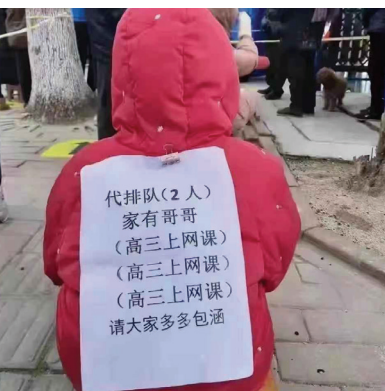 代排队(2人)
家有哥哥
(高三上网课)
(高三上网课)
(高三上网课)
请大家多多包涵